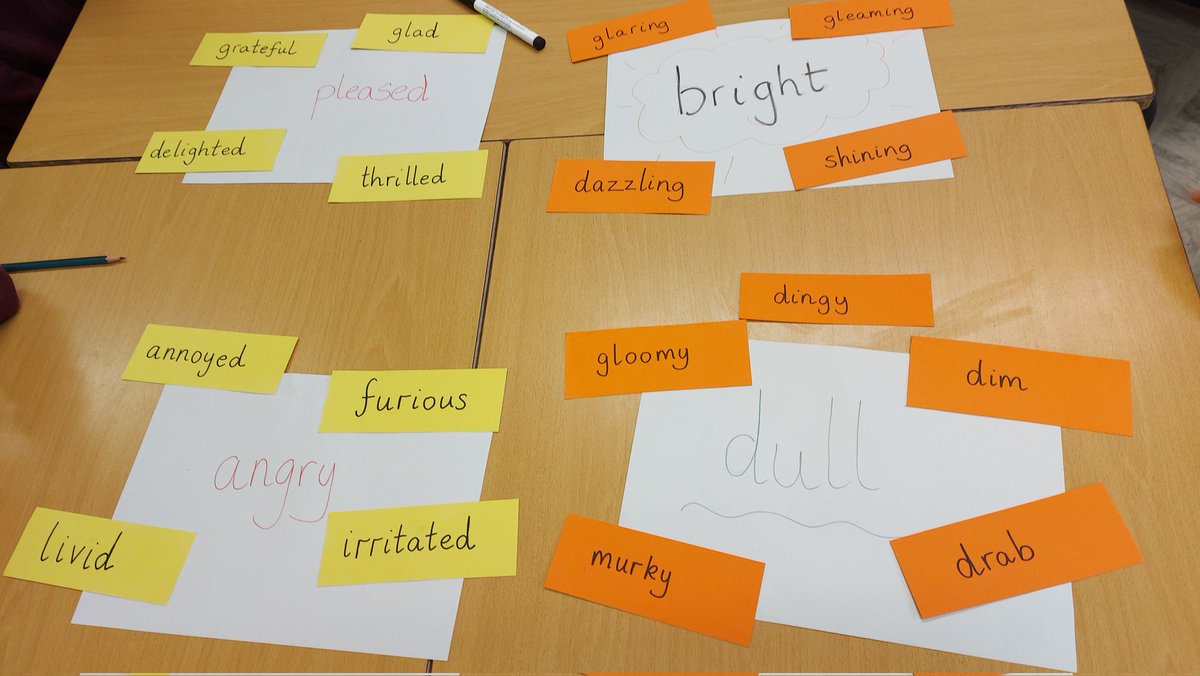 grateful
glad
pleased
delighted
thrilled
glaring
gleaming
bright
dazzling
shining
annoyed
furious
angry
livid
irritated
dingy
gloomy
dim
dull
murky
drab